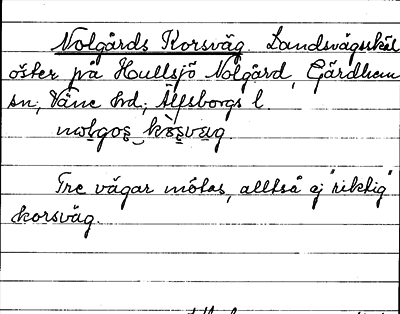 Nolgårds Korsväg. Landsvägsskäl
öster på Hullsjö Nolgård, Gärdhem
sn, Väne hd, Älfsborgs l.
nolgos kosvag.
Tre vägar mötas, alltså ej "riktig"
korsväg.